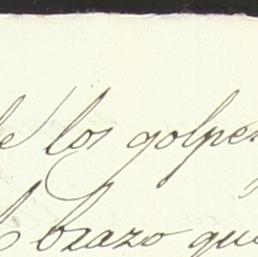 de los golpes
brazo que